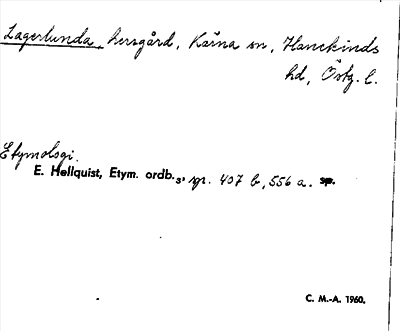 Lagerlunda, herrgård, Kärna sn, Hanekinds
hd, Östg. l.
Etymologi.
E. Hellquist, Etym. ordb., s. 407 b, 556 a. sp.
C. M.-A. 1960.